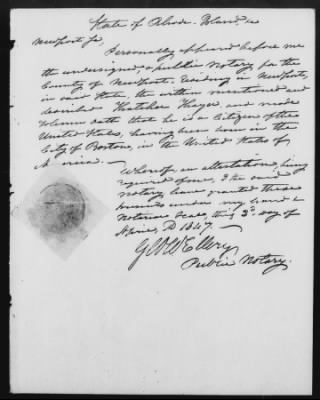 State of Rhode Island &c
Newport Ss.
Personally appeared before me
the undersigned, a public Notary for the
County of Newport. Residing in Newport,
in said State, the within mentioned and
described Thatcher Thayer, and made
Solemn oath that he is a Citizen of the
United States, having been born in the
City of Boston, in the United States of
America.—
Whereof an attestation being
required of me, I the said
Notary have granted these
under my hand &
Notarial Seal, this 3d day of
April, AD 1847.—
Ellery
Public Notary.